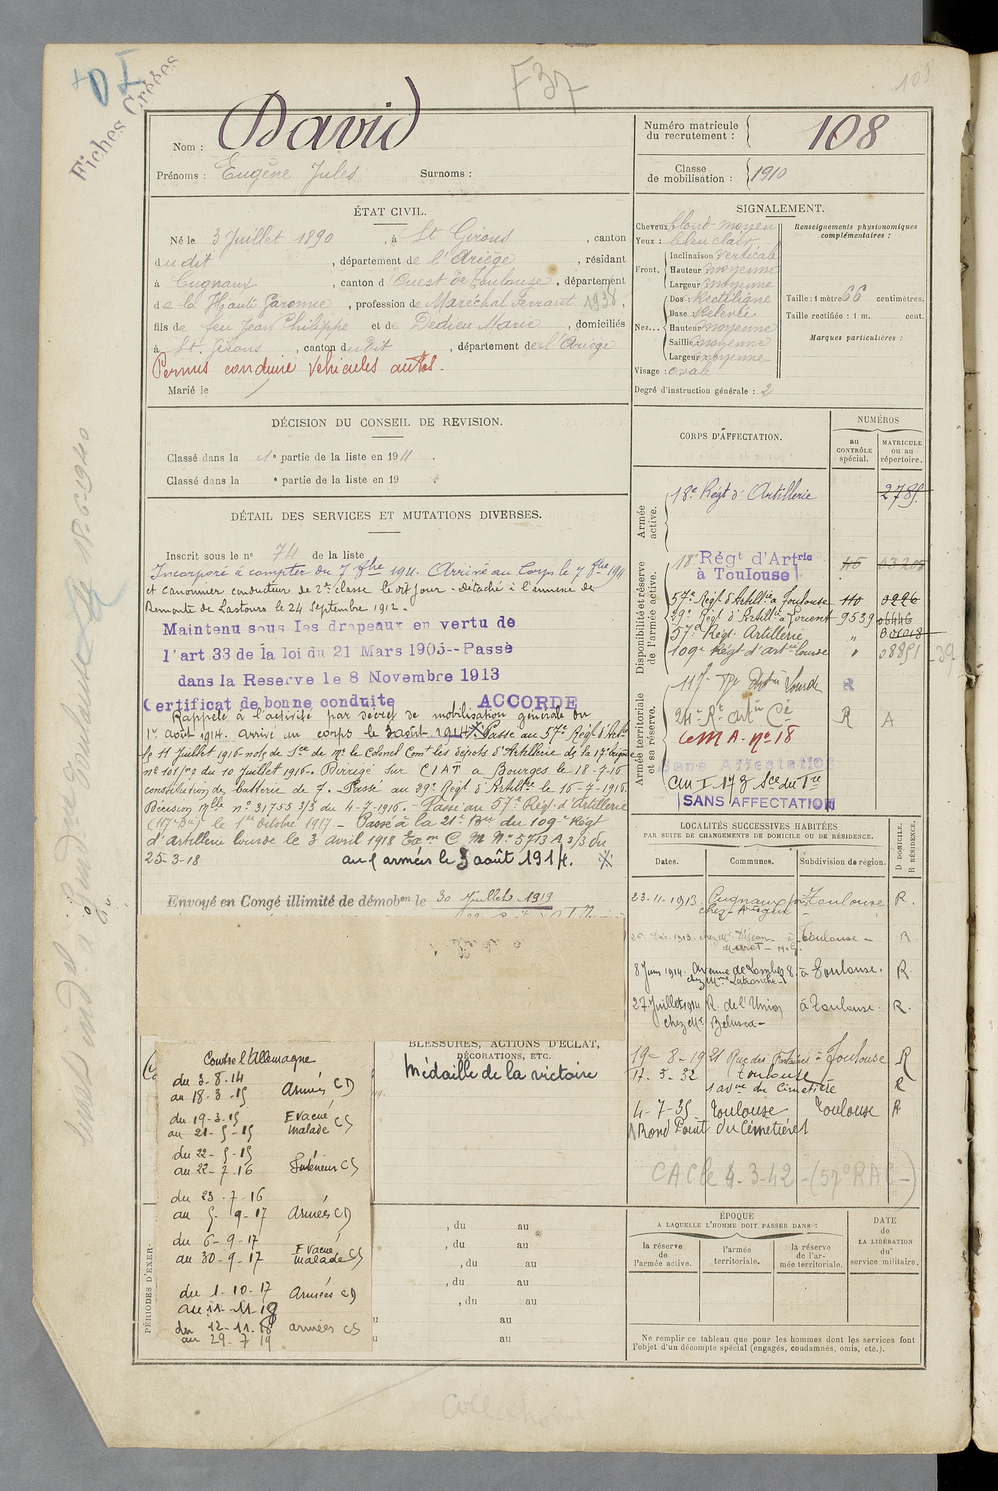 Fiches Créées
F37
108
Nom : David
Prénoms : Eugène Jules Surnoms :
Numéro matricule du recrutement : 108
Classe de mobilisation : 1910
ÉTAT CIVIL.
Né le 3 Juillet 1890, à St Girons, canton
dudit, département de l'Ariège, résidant
à Cugnaux, canton d Ouest de Toulouse, département
de la Haute Garonne, profession de Maréchal ferrant 1938,
fils de feu Jean Philippe et de Dedieu Marie, domiciliés
à St. Girons, canton dudit, département de l'Ariège
Permis conduire véhicules autos.
Marié le
SIGNALEMENT.
Cheveux blond moyen
Yeux : bleu clair
Front. Inclinaison verticale
Hauteur moyenne
Largeur moyenne
Nez... Dos rectiligne
Base relevée
Hauteur moyenne
Saillie moyenne
Largeur moyenne
Visage : ovale
Degré d'instruction générale : 2
Renseignements physionomiques complémentaires :
Taille : 1 mètre 66 centimètres.
Taille rectifiée : 1 m. cent.
Marques particulières :
DÉCISION DU CONSEIL DE REVISION.
Classé dans la 1e partie de la liste en 1911.
Classé dans la e partie de la liste en 19 .
DÉTAIL DES SERVICES ET MUTATIONS DIVERSES.
Inscrit sous le n° 74 de la liste
Incorporé à compter du 7 8bre 1911. Arrivé au Corps le 7 8bre 1911
et canonnier conducteur de 2e classe le dit jour - détaché à l'annexe de
Remonte de Lastours le 24 Septembre 1912.
Maintenu sous les drapeaux en vertu de
l'art 33 de la loi du 21 Mars 1905--Passé
dans la Reserve le 8 Novembre 1913
Certificat de bonne conduite ACCORDE
Rappelé à l'activité par décret de mobilisation générale du
1er août 1914. arrivé au corps le 3 août 1914. Passé au 57e Régt d'Artie
le 11 Juillet 1916
n° 101/m2 du 10 Juillet 1916. Dirigé sur C I A T a Bourges le 18-7-16
constitution de batterie de 7. Passé au 39e Régt d'Artillie le 16-7-1916
Décision Mlle n° 31755 3/3 du 4-7-1916. - Passé au 57e Régt. d'Artillerie
(117e Bie) le 1er Octobre 1917. - Passé à la 21e Bie du 109e Régt
d'Artillerie lourde le 3 avril 1918 Exon C M N° 5713 A 3/3 du
25-3-18
aux armées le 3 août 1914.
Envoyé en Congé illimité de démobon le 30 Juillet 1919
CORPS D'AFFECTATION.
NUMÉROS
au CONTRÔLE spécial.
MATRICULE ou au répertoire.
Armée active.
18e Régt d'Artillerie 2785
Disponibilité et réserve de l'armée active.
18e Régt d'Artrie à Toulouse
57e Régt d'Artillie à Toulouse 110 0226
39e Régt d'Artillie à Lorient 9539 06446
57e Régt. Artillerie "
109e Régt d'artie lourde " 08851 - 39
Armée territoriale et sa réserve.
117e Rgt Artie Lourde
24e Rt Artie Cie R A
CMA. n° 18
Sans Affectation
CM I 17e Sce du Tre
SANS AFFECTATION
LOCALITÉS SUCCESSIVES HABITÉES
PAR SUITE DE CHANGEMENTS DE DOMICILE OU DE RÉSIDENCE.
D DOMICILE. R RÉSIDENCE.
Dates. Communes. Subdivision de région.
23-11-1913. Cugnaux Toulouse R.
à Toulouse - R.
8 Juin 1914. Avenue de Lombez 8. à Toulouse. R.
27 Juillet 1914 R. de l'Union à Toulouse. R.
chez Mr
19-8-19 21 Rue des Fontaines à Toulouse R
17-3-32 Toulouse
1 avue du Cimetière R
4-7-35 Toulouse Toulouse R
1 Rond Point du Cimetière
CAC le 4-3-42 - (57e RAC-)
BLESSURES, ACTIONS D'ÉCLAT,
DÉCORATIONS, ETC.
Médaille de la victoire
Contre l'Allemagne
du 3-8-14
au 18-3-15 Armées CD
du 19-3-15 Evacué
au 21-5-15 malade CS
du 22-5-15
au 22-7-16 Intérieur CS
du 23-7-16
au 5-9-17 Armées CD
du 6-9-17 Evacué
au 30-9-17 malade CS
du 1-10-17 Armées CD
au 11-11-18
du 12-11-18 armées CS
au 29-7-19
PÉRIODES D'EXER-
, du au
, du au
, du au
, du au
, du au
au
au
ÉPOQUE
A LAQUELLE L'HOMME DOIT PASSER DANS :
la réserve de l'armée active.
l'armée territoriale.
la réserve de l'armée territoriale.
DATE de LA LIBÉRATION du service militaire.
Ne remplir ce tableau que pour les hommes dont les services font
l'objet d'un décompte spécial (engagés, condamnés, omis, etc.).